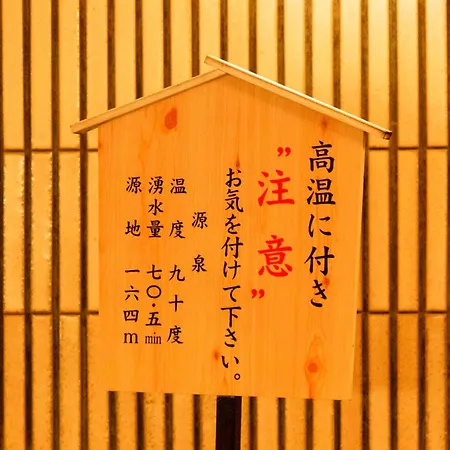 高温に付き
"注意"
お気を付けて下さい。
源泉
温度 九十度
湧水量 七〇・五min
源地 一六四m